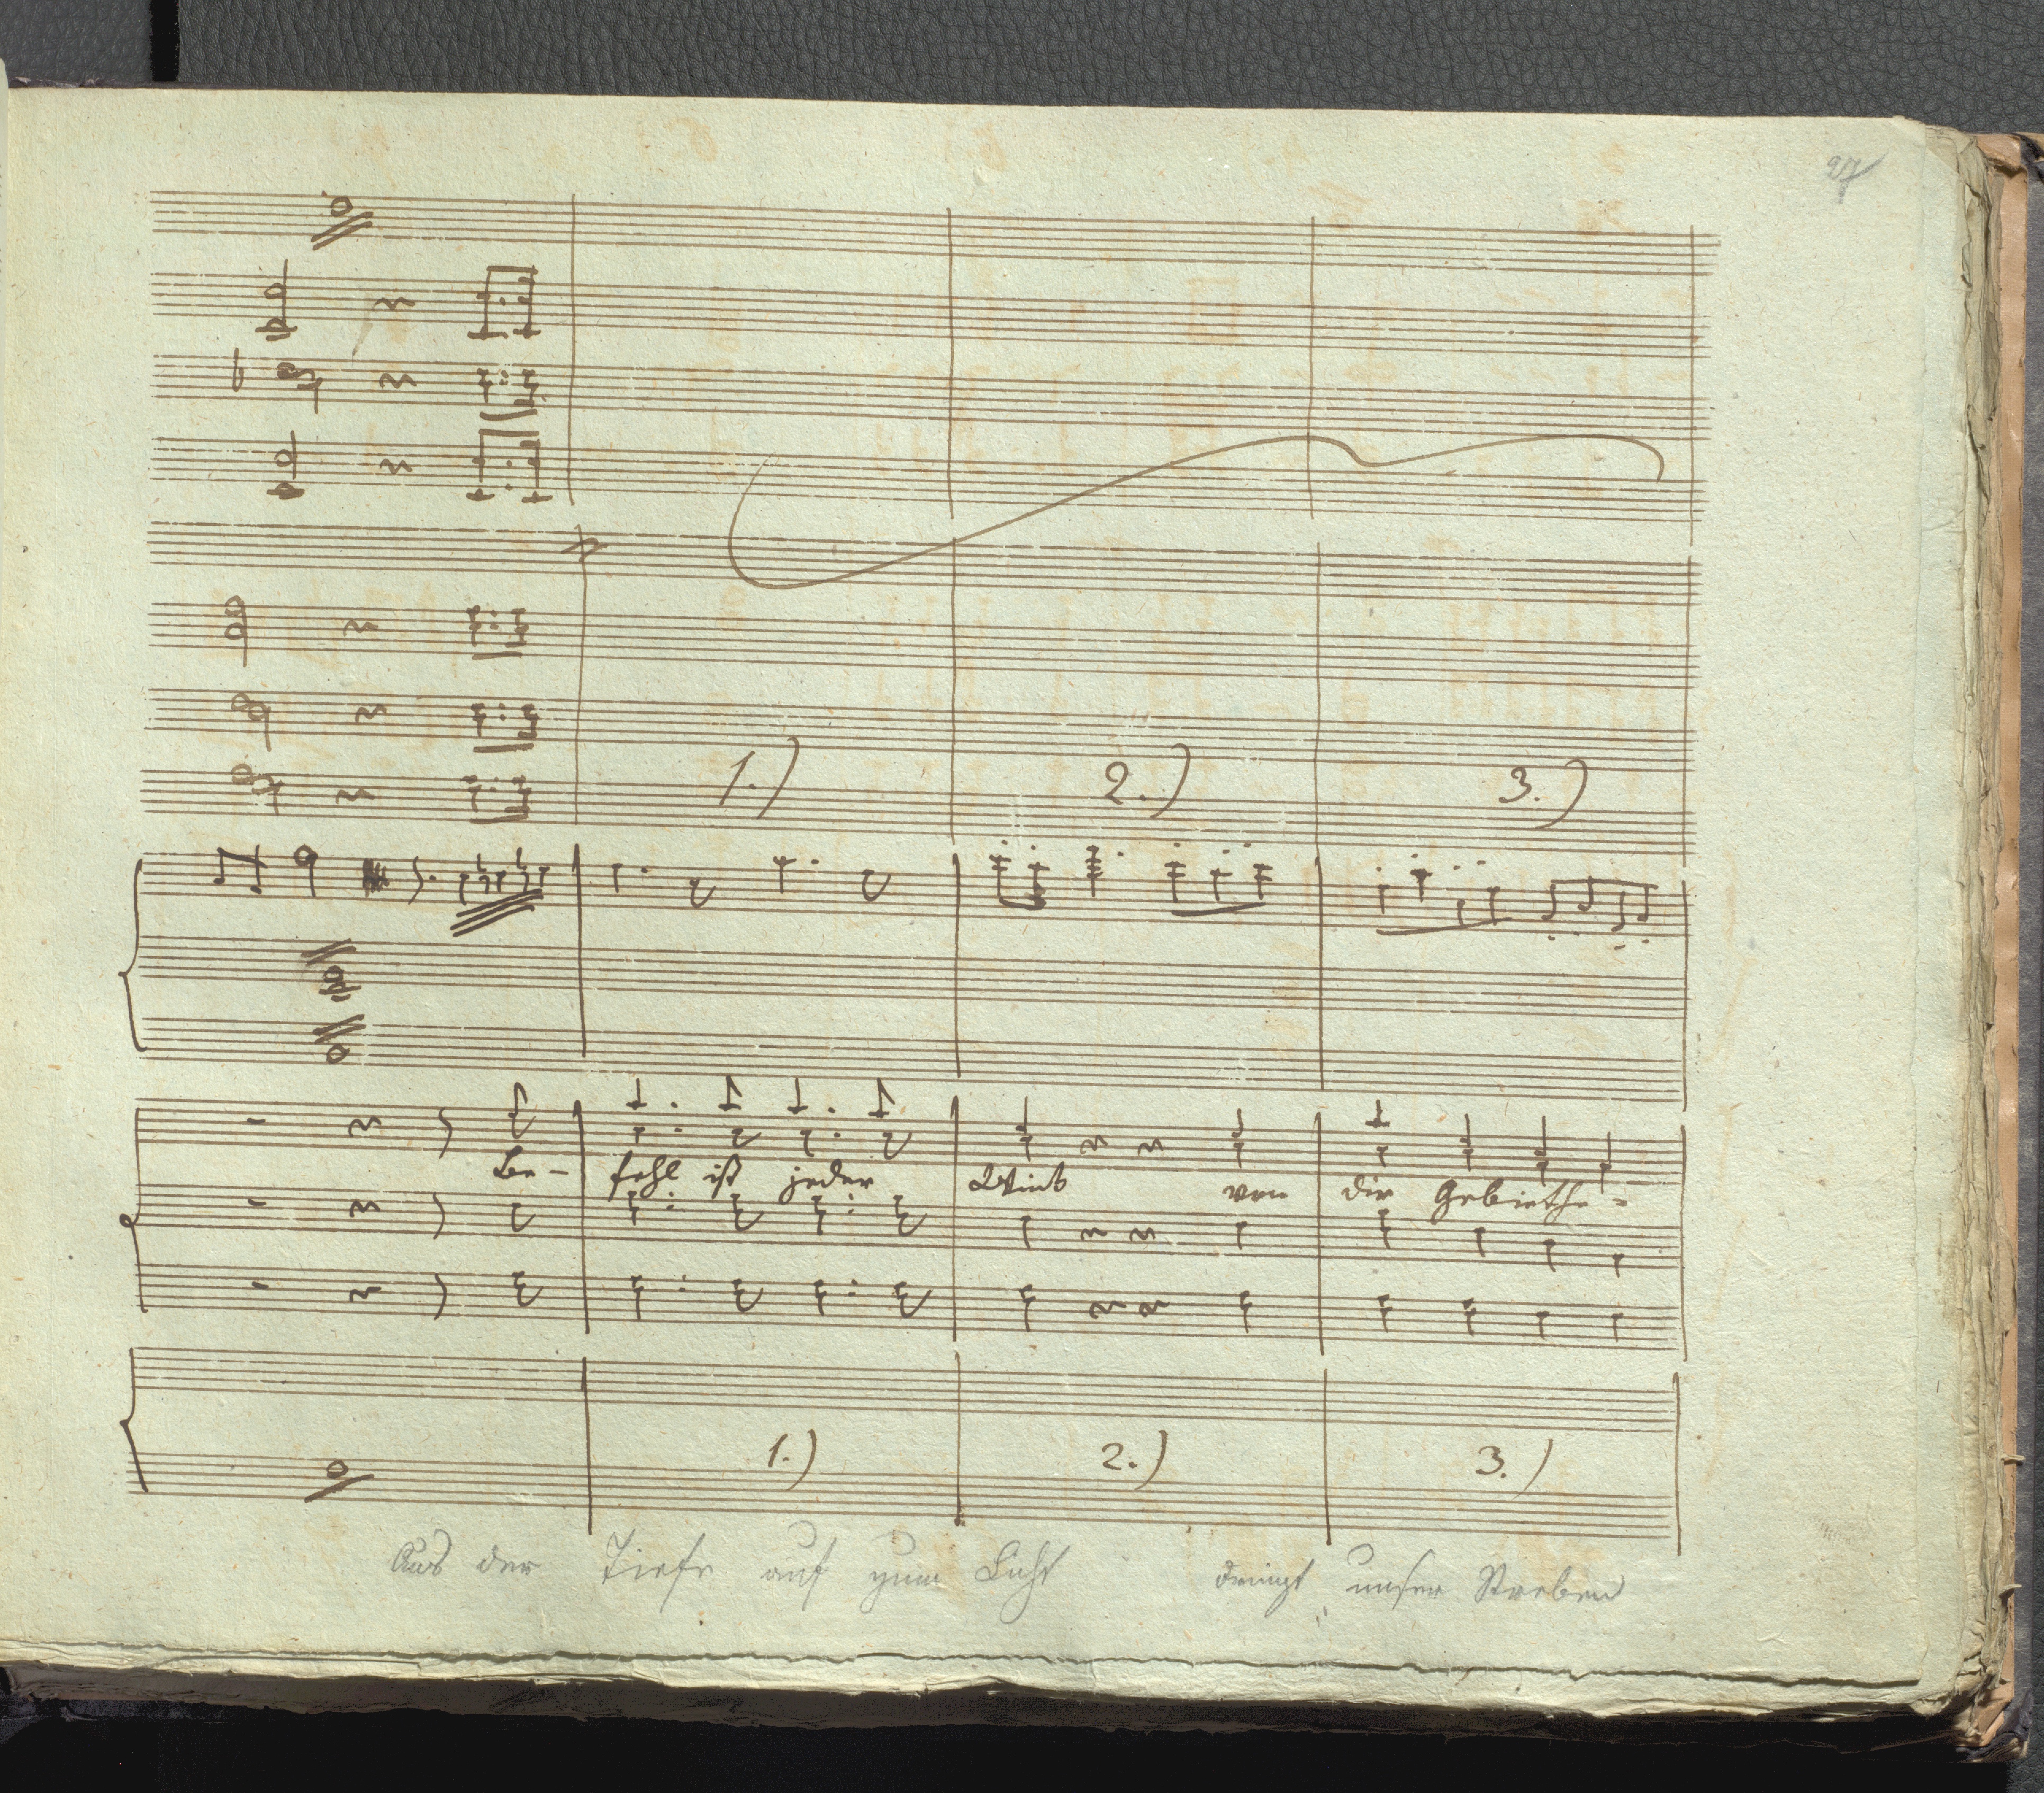 27
1.) 2.) 3.)
Be- fehl ist jeder Wink von dir Gebiethe-
1.) 2.) 3.)
Aus der Tiefe auf zum Licht dringt unser Streben